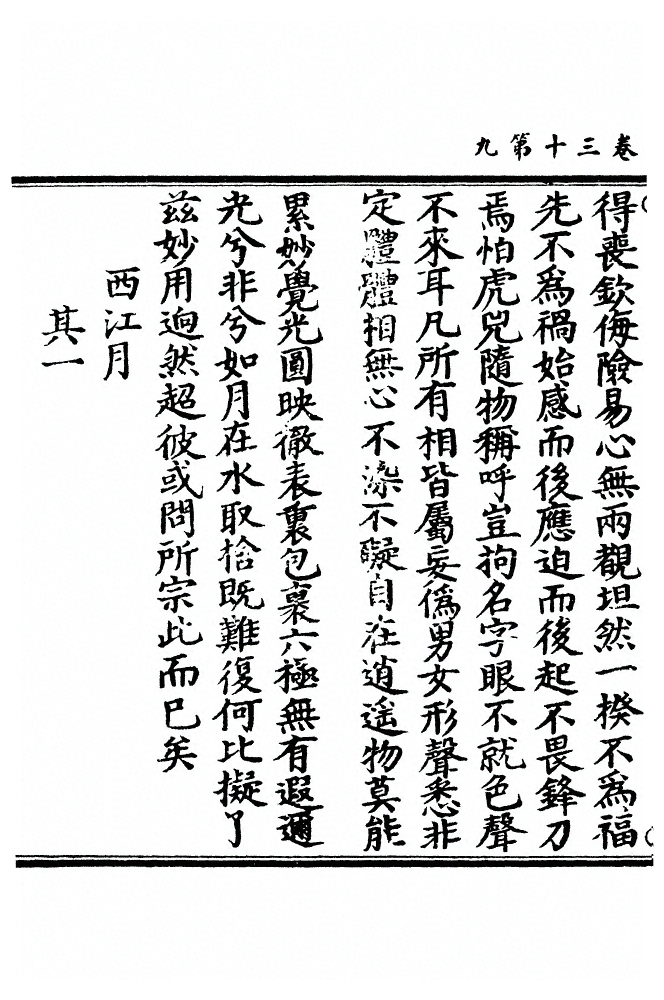 卷三十第九
得喪欽侮險易心無兩觀坦然一揆不爲福
先不爲禍始感而後應迫而後起不畏鋒刀
焉怕虎兕隨物稱呼豈拘名字眼不就色聲
不來耳凡所有相皆屬妄僞男女形聲悉非
定體體相無心不染不礙自在逍遥物莫能
累妙覺光圓映徹表裏包裹六極無有遐邇
光兮非兮如月在水取捨既難復何比擬了
兹妙用逈然超彼或問所宗此而已矣
西江月
其一